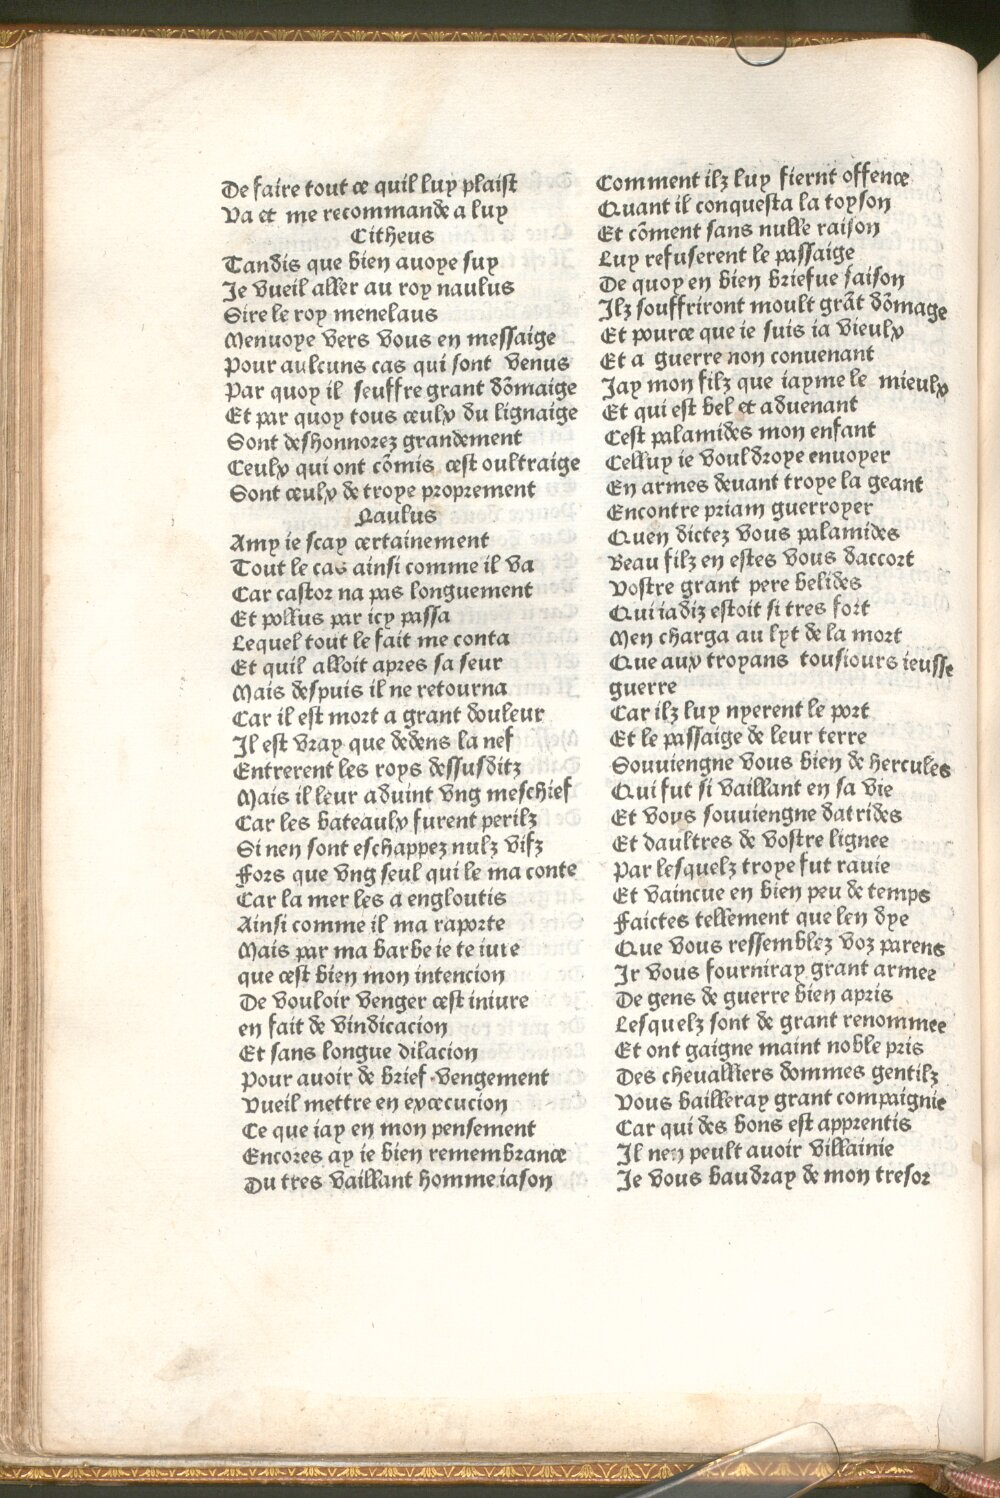 De faire tout ce quil luy plaist
Va et me recommande a luy
Citheus
Tandis que bien auoye suy
Je vueil aller au roy naulus
Sire le roy menelaus
Menuoye vers vous en messaige
Pour aulcuns cas qui sont venus
Par quoy il seuffre grant dõmaige
Et par quoy tous ceulx du lignaige
Sont deshonnorez grandement
Ceulx qui ont cõmis cest oultraige
Sont ceulx de troye proprement
Naulus
Amy ie scay certainement
Tout le cas ainsi comme il va
Car castor na pas longuement
Et pollus par icy passa
Lequel tout le fait me conta
Et quil alloit apres sa seur
Mais despuis il ne retourna
Car il est mort a grant douleur
Il est vray que dedens la nef
Entrerent les roys dessusditz
Mais il leur aduint vng meschief
Car les bateaulx furent perilz
Si nen sont eschappez nulz vifz
Fors que vng seul qui le ma conte
Car la mer les a engloutis
Ainsi comme il ma raporte
Mais par ma barbe ie te iure
que cest bien mon intencion
De vouloir venger cest iniure
en fait de vindicacion
Et sans longue dilacion
Pour auoir de brief vengement
Vueil mettre en excecucion
Ce que iay en mon pensement
Encores ay ie bien remembrance
Du tres vaillant homme iason
Comment ilz luy fiernt offence
Quant il conquesta la toyson
Et cõment sans nulle raison
Luy refuserent le passaige
De quoy en bien briefue saison
Ilz souffriront moult grãt dõmage
Et pource que ie suis ia vieulx
Et a guerre non conuenant
Jay mon filz que iayme le mieulx
Et qui est bel et aduenant
Cest palamides mon enfant
Celluy ie vouldroye enuoyer
En armes deuant troye la geant
Encontre priam guerroyer
Quen dictez vous palamides
Beau filz en estes vous daccort
Vostre grant pere belides
Qui iadiz estoit si tres fort
Men charga au lyt de la mort
Que aux troyans tousiours ieusse
guerre
Car ilz luy nyerent le port
Et le passaige de leur terre
Souuiengne vous bien de hercules
Qui fut si vaillant en sa vie
Et vous souuiengne datrides
Et daultres de vostre lignee
Par lesquelz troye fut rauie
Et vaincue en bien peu de temps
Faictes tellement que len dye
Que vous ressemblez voz parens
Ir vous fourniray grant armee
De gens de guerre bien apris
Lesquelz sont de grant renommee
Et ont gaigne maint noble pris
Des chevalliers dommes gentilz
Vous bailleray grant compaignie
Car qui des bons est apprentis
Il nen peult auoir villainie
Je vous baudray de mon tresor